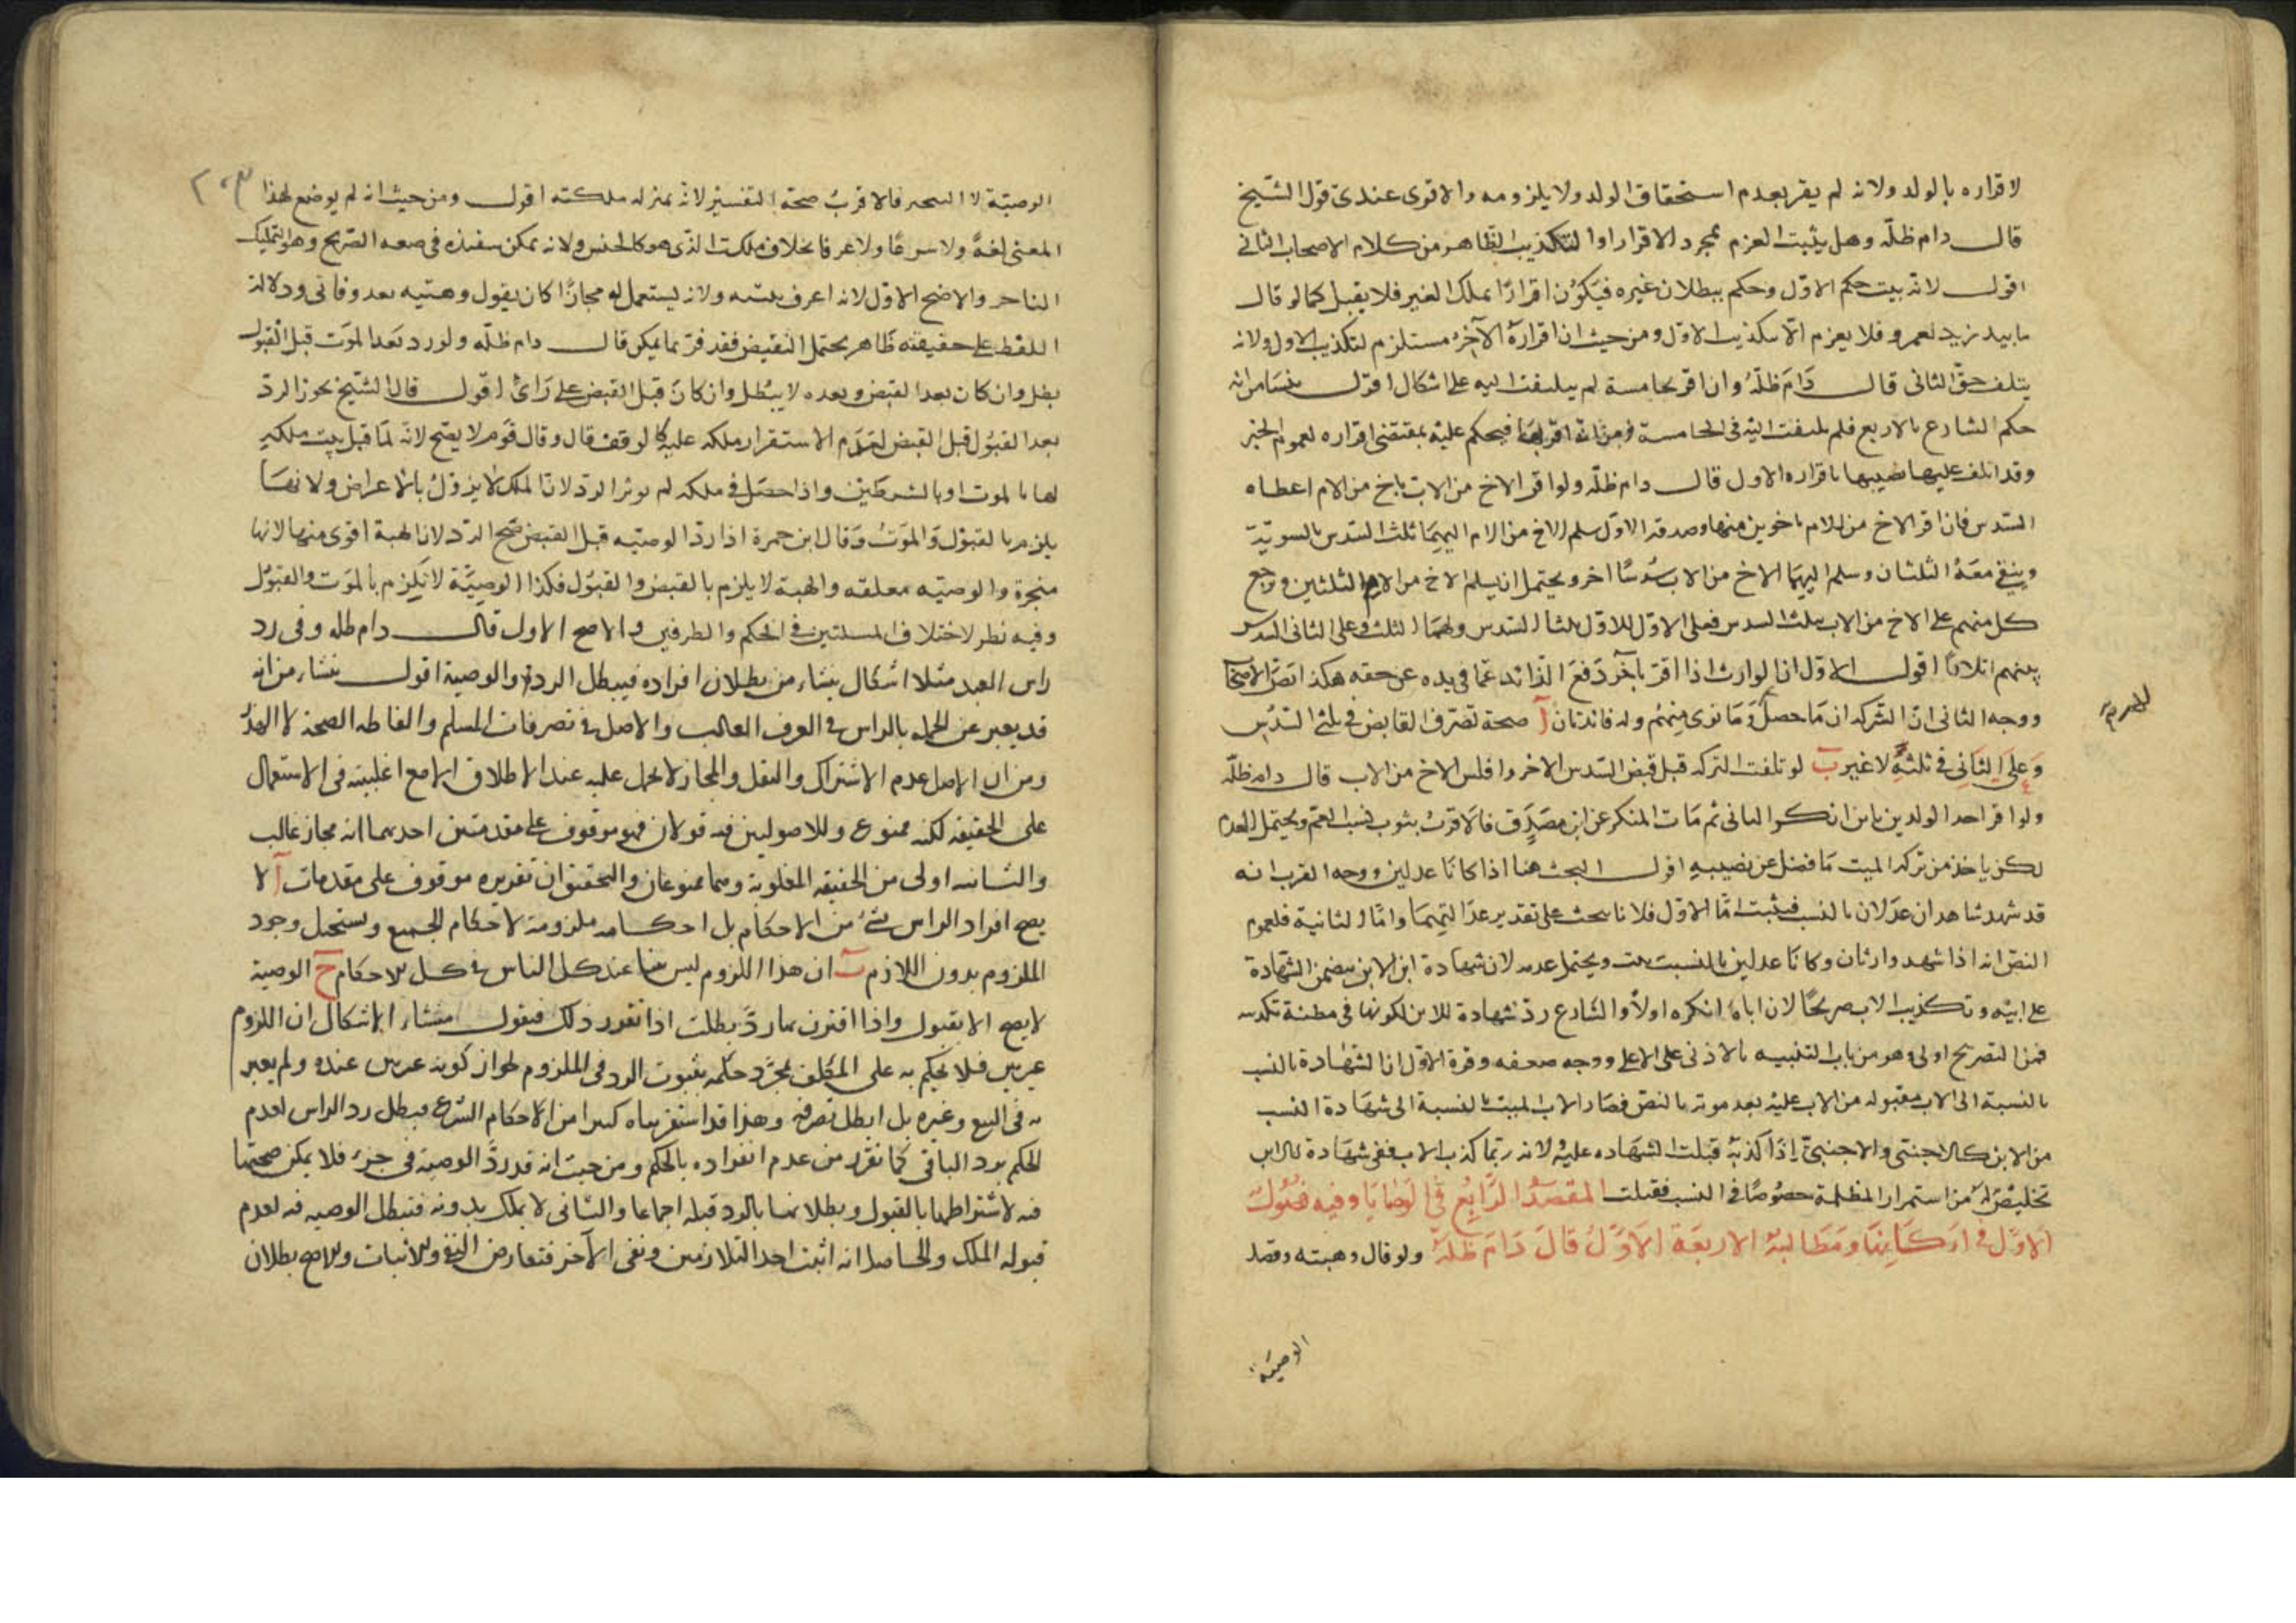 لاقراره بالولد ولانه لم يقر بعدم استحقاق الولد ولا يلزومه والاقوى عندى قول الشيخ
قال دام ظله وهل يثبت العزم بمجرد الاقرار او التكذيب الظاهر من كلام الاصحاب الثانى
اقول لانه بيت حكم الاول وحكم ببطلان غيره فيكون اقرارا بملك الغير فلا يقبل كما لو قال
ما بيد زيد لعمرو فلا يعزم الا بتكذيب الاول ومن حيث ان اقراره الآخر مستلزم لتكذيب الاول ولانه
يتلف حق الثانى قال دام ظله وان اقر بخامسة لم يلتفت اليه على اشكال اقول ينشا من انه
حكم الشارع بالاربع فلم يلتفت اليه فى الخامسة ومن انه اقر بها فيحكم عليه بمقتضى اقراره لعموم الخبر
وقد اتلف عليها نصيبها باقراره الاول قال دام ظله ولو اقر الاخ من الاب باخ من الام اعطاه
السدس فان اقر الاخ من الام باخوين منها وصدقه الاول سلم الاخ من الام اليهما ثلث السدس بالسوية
ويبقى معه الثلثان وسلم اليهما الاخ من الاب سدسا اخر ويحتمل ان يسلم الاخ من الام الثلثين ورجع
كل منهم على الاخ من الاب بثلث السدس فعلى الاول للاول ثلثا السدس ولهما الثلث وعلى الثانى السدس
بينهم اثلاثا اقول الاول ان الوارث اذا اقر بآخر دفع الزائد عما فى يده عن حقه هكذا نص الاصحاب
ووجه الثانى ان الشركه ان ما حصل وما توى منهم وله فائدتان آ صحة تصرف القابض فى ثلثى السدس
وعلى الثانى فى ثلثه لا غير ب لو تلفت التركه قبل قبض السدس الاخر وافلس الاخ من الاب قال دام ظله
ولو اقر احد الولدين بابن انكر الثانى ثم مات المنكر عن ابن مصدق فالاقرب ثبوت نسب العم ويحتمل العدم
لكن ياخذ من تركه الميت ما فضل عن نصيبه اقول البحث هنا اذا كانا عدلين ووجه القرب انه
قد شهد شاهدان عدلان بالنسب فيثبت اما الاول فلانا نبحث على تقدير عدالتيهما واما الثانية فلعموم
النص انه اذا شهد وارثان وكانا عدلين بالنسب ثبت ويحتمل عدمه لان شهادة ابن الابن يتضمن الشهادة
على ابيه وتكذيب الاب صريحا لان اباه انكره اولا والشارع رد شهادة الابن لكونها فى مظنة تكذيبه
فمن التصريح اولى وهو من باب التنبيه بالادنى على الاعلى ووجه ضعفه وقوة الاول ان الشهادة بالنسب
بالنسبة الى الاب مقبوله من الاب عليه بعد موته بالنص فصار الاب الميت بالنسبة الى شهادة النسب
من الابن كالاجنبى والاجنبى اذا كذبه قبلت الشهاده عليه لانه ربما كذب الاب ففى شهادة الابن
تخليص له من استمرار المظلمة خصوصا فى النسب فقبلت المقصد الرابع فى الوصايا وفيه فصول
الاول فى اركانها ومطالبه الاربعة الاول قال دام ظله ولو قال وهبته وقصد
الوصية
٢٠٣
الوصية لا التنجيز فالاقرب صحة التفسير لانه بمنزله ملكته اقول ومن حيث انه لم يوضع لهذا
المعنى لغة ولا شرعا ولا عرفا بخلاف ملكت الذى هو كالجنس ولانه يمكن تنفيذه فى الصريح وهو التمليك
الناجز والاصح الاول لانه اعرف بنيته ولانه يستعمل له مجازا كان يقول وهبته بعد وفاتى ودلالة
اللفظ على حقيقته ظاهر يحتمل النقيض فقد فسر بما يمكن قال دام ظله ولو رد بعد الموت قبل القبول
بطل وان كان بعد القبض وبعده لا يبطل وان كان قبل القبض على رأى اقول قال الشيخ يجوز الرد
بعد القبول قبل القبض لعدم الاستقرار ملكه عليه كالوقف قال وقال قوم لا يصح لانه لما قبل يثبت ملكه
لها بالموت او بالشرطين واذا حصل فى ملكه لم يؤثر الرد لان الملك لا يزول بالاعراض ولانها
يلزم بالقبول والموت وقال ابن حمزة اذا رد الوصيه قبل القبض صح الرد لان الهبة اقوى منها لانها
منجزة والوصيه معلقه والهبة لا يلزم بالقبض والقبول فكذا الوصية لا يلزم بالموت والقبول
وفيه نظر لاختلاف المسئلتين فى الحكم والطرفين والاصح الاول قال دام ظله وفى رد
راس العبد مثلا اشكال ينشاء من بطلان افراده فيبطل الرد او الوصية اقول ينشاء من انه
قد يعبر عن الجمله بالراس فى العرف الغالب والاصل فى تصرفات المسلم والفاظه الصحة لا الهذر
ومن ان الاصل عدم الاشتراك والنقل والمجاز لا يحمل عليه عند الاطلاق الا مع اغلبيته فى الاستعمال
على الحقيقه لكنه ممنوع وللاصوليين فيه قولان فهو موقوف على مقدمتين احديهما انه مجاز غالب
والثانيه اولى من الحقيقه المغلوبة وهما ممنوعان والتحقيق ان تقريره موقوف على مقدمات آ لا
يصح افراد الراس بشئ من الاحكام بل احكامه ملزومة لاحكام الجميع ويستحيل وجود
الملزوم بدون اللازم ب ان هذا اللزوم ليس بينا عند كل الناس فى كل الاحكام ج الوصية
لا يصح الا بقبول واذا اقترن بها رد بطلت اذا تقرر ذلك فنقول منشاء الاشكال ان اللزوم
غير بين فلا يحكم به على المكلف بمجرد حكمه بثبوت الرد فى الملزوم لجواز كونه غير بين عنده ولم يعتبر
به فى البيع وغيره بل ابطل تصرفه وهذا قد استقريناه كثيرا من الاحكام الشرع فيبطل رد الراس لعدم
الحكم برد الباقى كما تقرر من عدم انفراده بالحكم ومن حيث انه قد رد الوصية فى جزء فلا يمكن صحتها
فيه لاشتراطها بالقبول وبطلانها بالرد قبله اجماعا والثانى لا يملك بدونه فتبطل الوصيه فيه لعدم
قبوله الملك والحاصل انه اثبت احد المتلازمين ونفى الآخر فتعارض النفى والاثبات والاصح بطلان